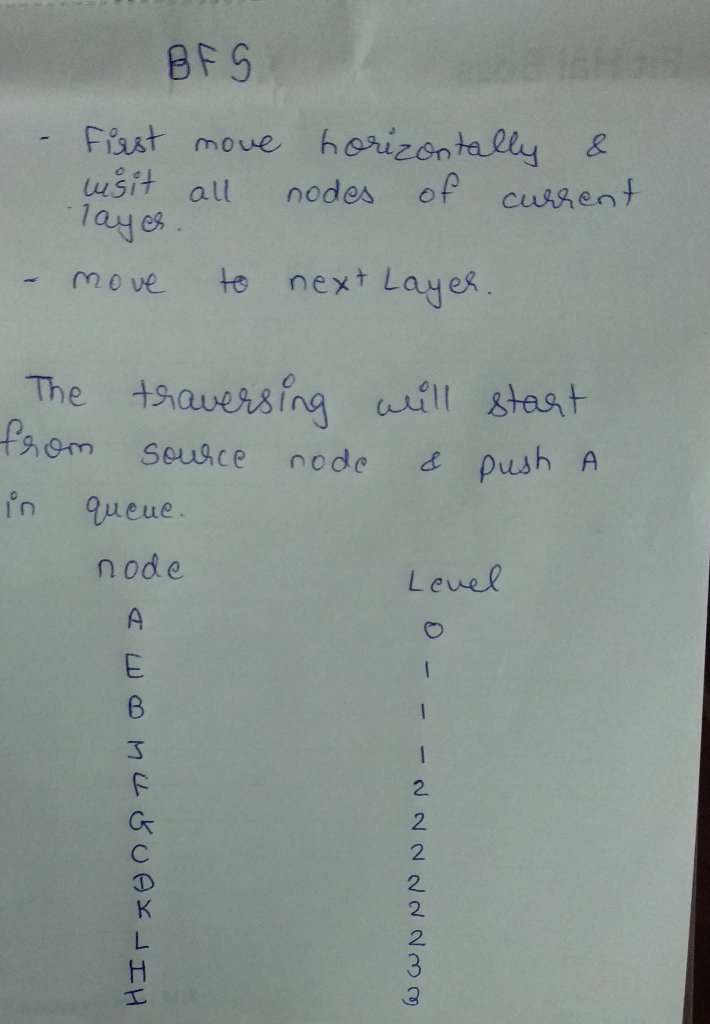 BFS
- First move horizontally &
visit all nodes of current
layer.
- move to next Layer.
The traversing will start
from source node & push A
in queue.
node Level
A 0
E 1
B 1
J 1
F 2
G 2
C 2
D 2
K 2
L 2
H 3
I 3